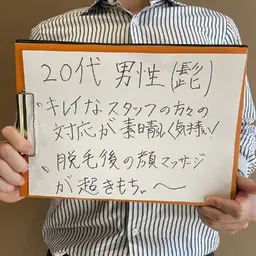 20代 男性(髭)
・キレイなスタッフの方々の
対応が素晴しく気持良い!
・脱毛後の顔マッサージ
が超きもちぃ〜